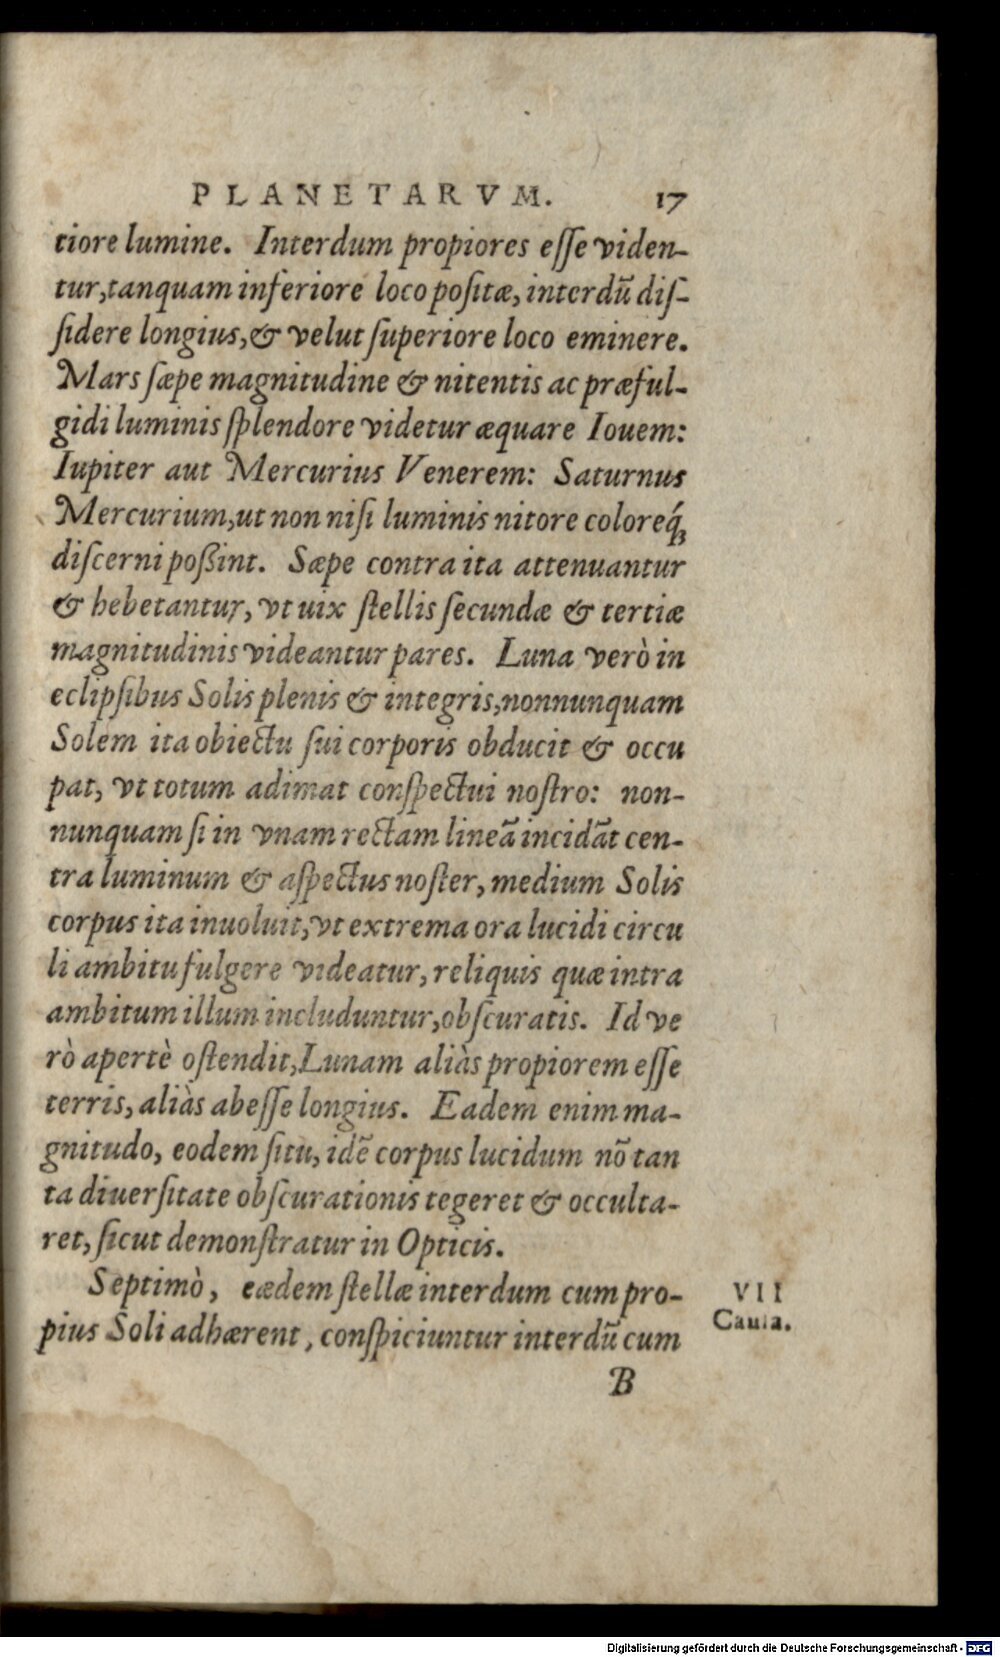 PLANETARVM. 17
tiore lumine. Interdum propiores eſſe viden-
tur, tanquam inferiore loco poſitæ, interdũ diſ-
ſidere longius, & velut ſuperiore loco eminere.
Mars ſæpe magnitudine & nitentis ac præful-
gidi luminis ſplendore videtur æquare Iouem:
Iupiter aut Mercurius Venerem: Saturnus
Mercurium, ut non niſi luminis nitore coloreq́;
diſcerni poßint. Sæpe contra ita attenuantur
& hebetantur, vt uix ſtellis ſecundæ & tertiæ
magnitudinis videantur pares. Luna verò in
eclipſibus Solis plenis & integris, nonnunquam
Solem ita obiectu ſui corporis obducit & occu
pat, vt totum adimat conſpectui noſtro: non-
nunquam ſi in vnam rectam lineã incidãt cen-
tra luminum & aſpectus noſter, medium Solis
corpus ita inuoluit, vt extrema ora lucidi circu
li ambitu fulgere videatur, reliquis quæ intra
ambitum illum includuntur, obſcuratis. Id ve
rò apertè oſtendit, Lunam aliàs propiorem eſſe
terris, aliàs abeſſe longius. Eadem enim ma-
gnitudo, eodem ſitu, idẽ corpus lucidum nõ tan
ta diuerſitate obſcurationis tegeret & occulta-
ret, ſicut demonſtratur in Opticis.
Septimò, eædem ſtellæ interdum cum pro-
pius Soli adhærent, conſpiciuntur interdũ cum
VII
Cauſa.
B
Digitalisierung gefördert durch die Deutsche Forschungsgemeinschaft - DFG